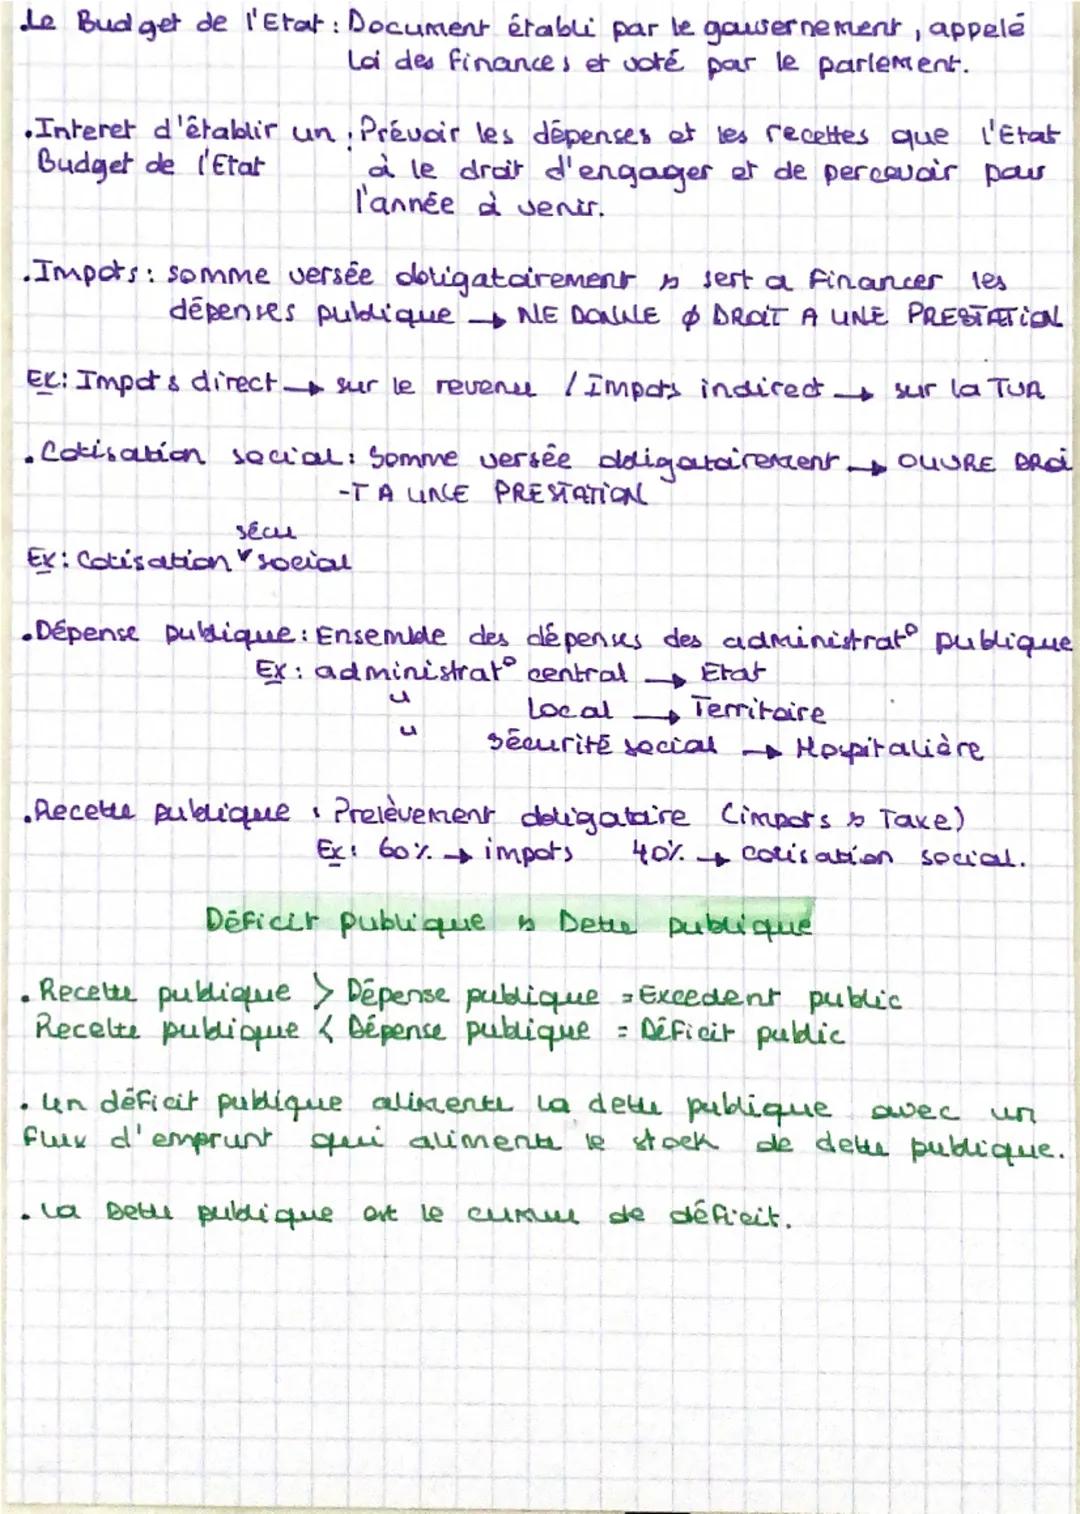 .Le Budget de l'Etat : Document établi par le gouvernement, appelé
Loi des finances et voté par le parlement.
.Interet d'établir un : Prévoir les dépenses et les recettes que l'Etat
Budget de l'Etat à le droit d'engager et de percevoir pour
l'année à venir.
.Impots : somme versée obligatoirement & sert a financer les
dépenses publique → NE DONNE Ø DROIT A UNE PRESTATION
Ex: Impots direct → sur le revenu / Impots indirect → sur la TVA
.Cotisation social : Somme versée obligatoirement → OUVRE DROI
-T A UNE PRESTATION
sécu
Ex: Cotisation ˅ social
.Dépense publique : Ensemble des dépenses des administrat° publique
Ex : administrat° central → Etat
" Local → Territoire
" sécurité social → Hospitalière
.Recette publique : Prelèvement obligatoire (impots & Taxe)
Ex: 60% → impots 40% → cotisation social.
Déficit publique & Dette publique
. Recette publique > Dépense publique = Excedent public
Recette publique < Dépense publique = Déficit public
. Un déficit publique alimente la dette publique avec un
flux d'emprunt qui alimente le stock de dette publique.
. La Dette publique est le cumul de déficit.